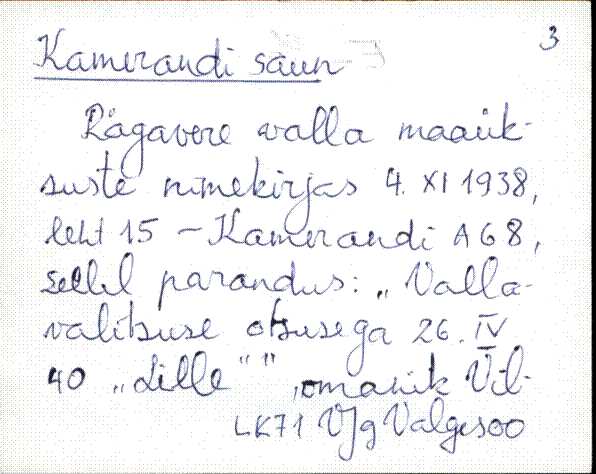 3
Kamerandi saun
Rägavere valla maaük-
suste nimekirjas 4. XI 1938,
leht 15 – Kamerandi A 68,
sellel parandus: „Valla-
valitsuse otsusega 26. IV
40 „Lille"", omanik Vil-
LK71 VJg Valgesoo